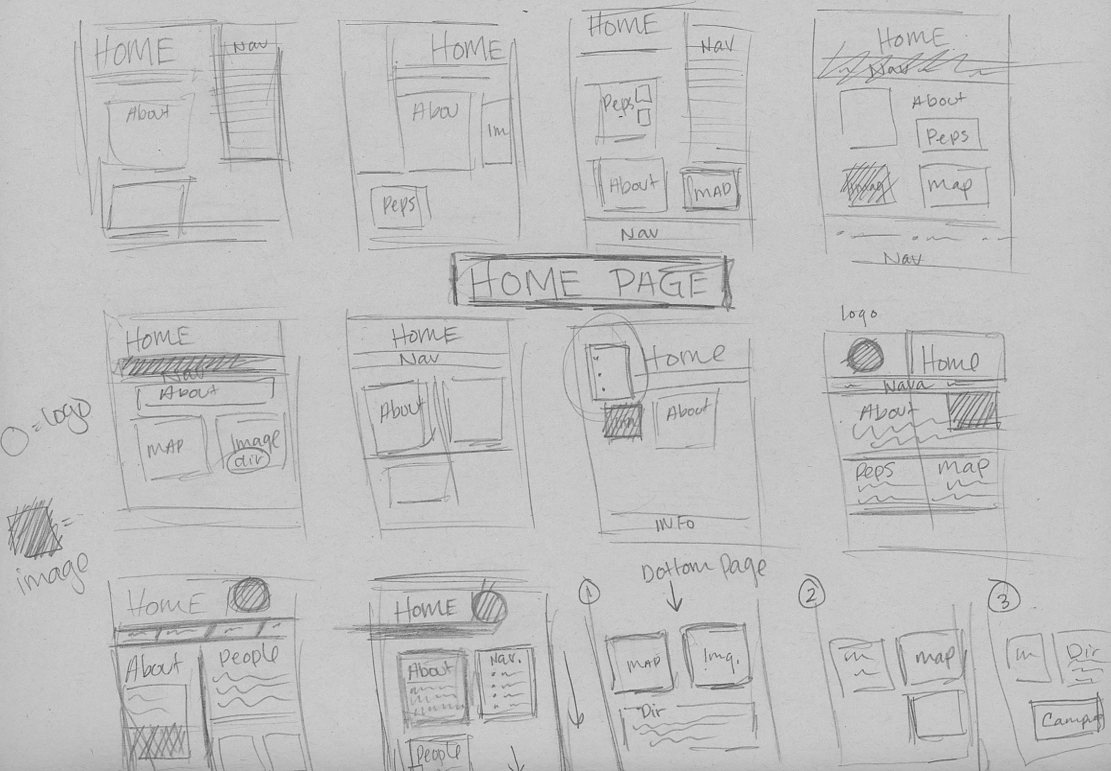 HOME
Nav
About
HOME
Abou
Im
Peps
HOME
Nav
Peps
About
MAP
Nav
HOME
Nav
About
Peps
Imag
Map
Nav
HOME PAGE
HOME
Nav
About
MAP
Image
dir
HOME
Nav
About
Home
Im
About
INFO
logo
Home
Nava
About
Peps
Map
= logo
= image
HOME
About
People
HOME
About
Nav.
People
Bottom Page
1
MAP
Img.
Dir
2
map
3
Dir
Campu